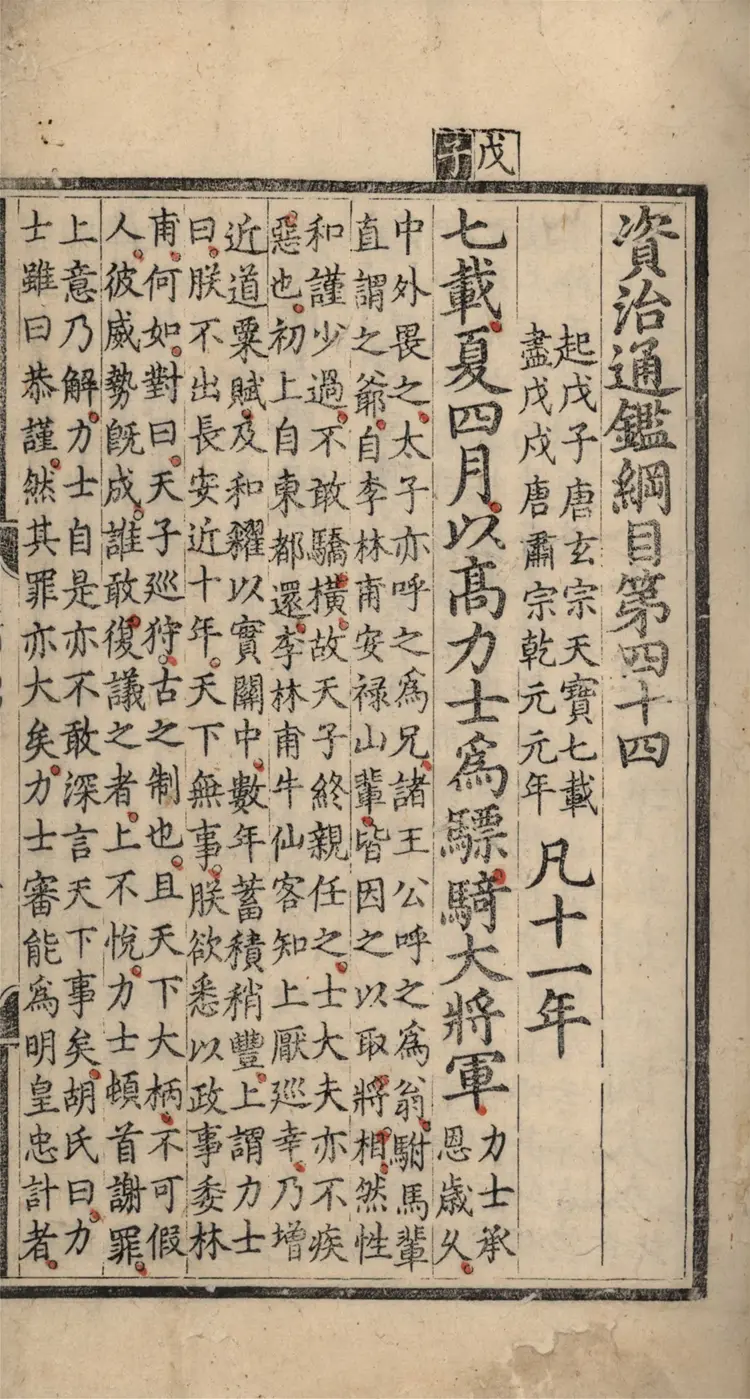 戊子
資治通鑑綱目第四十四
起戊子唐玄宗天寶七載
盡戊戌唐肅宗乾元元年
凡十一年
七載夏四月以髙力士爲驃騎大將軍
力士承
恩歲久
中外畏之太子亦呼之爲兄諸王公呼之爲翁駙馬輩
直謂之爺自李林甫安禄山輩皆因之以取將相然性
和謹少過不敢驕橫故天子終親任之士大夫亦不疾
惡也初上自東都還李林甫牛仙客知上厭巡幸乃增
近道粟賦及和糴以實關中數年蓄積稍豐上謂力士
曰朕不出長安近十年天下無事朕欲悉以政事委林
甫何如對曰天子巡狩古之制也且天下大柄不可假
人彼威勢旣成誰敢復議之者上不悅力士頓首謝罪
上意乃解力士自是亦不敢深言天下事矣胡氏曰力
士雖曰恭謹然其罪亦大矣力士審能爲明皇忠計者